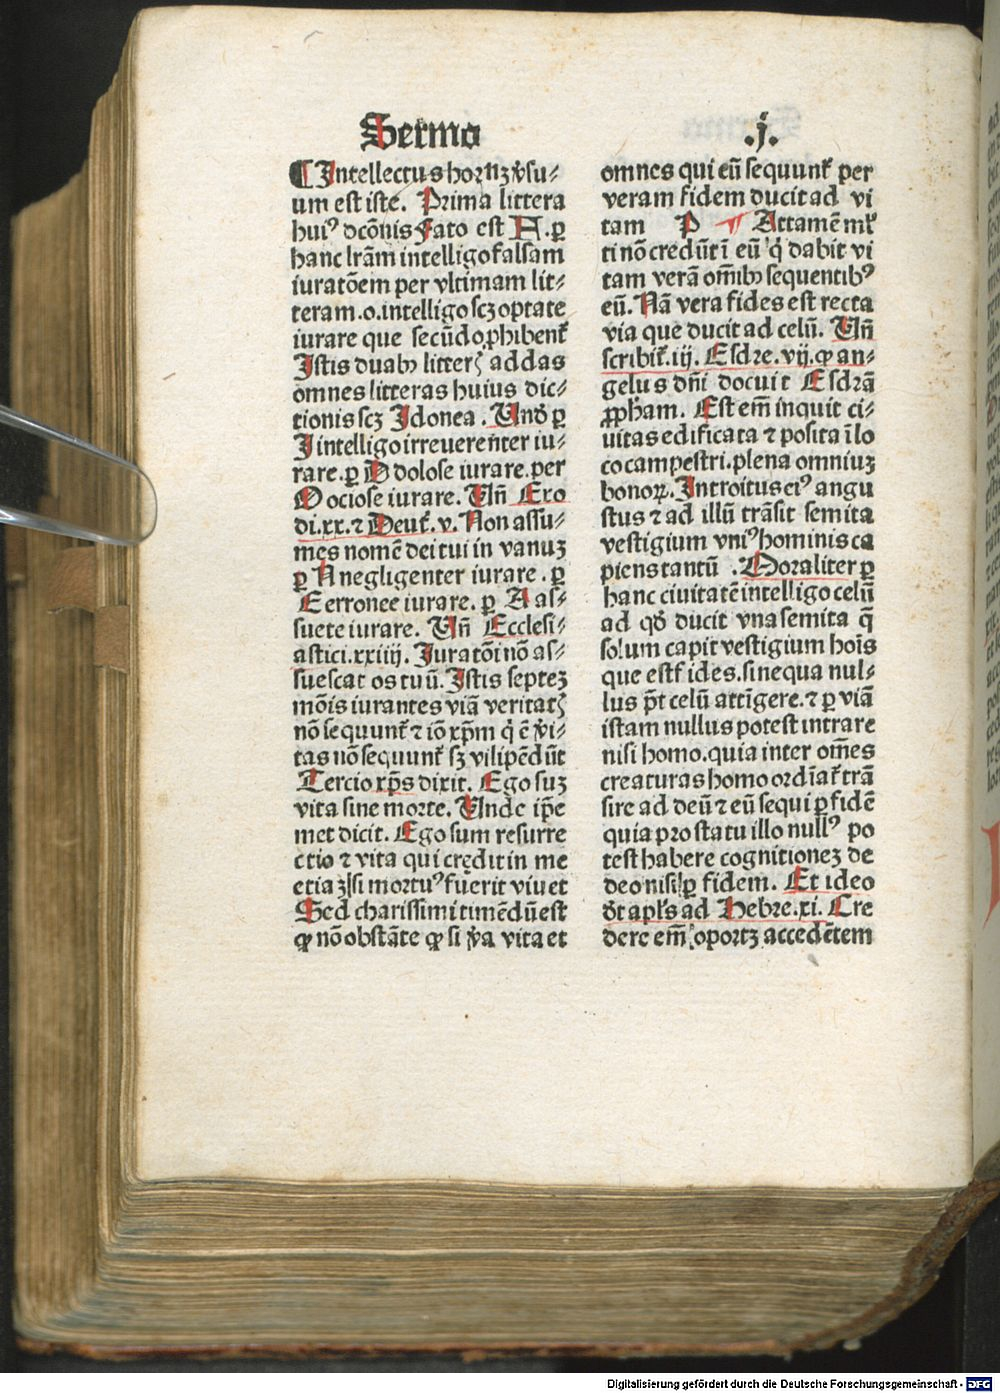 Sermo .j.
¶ Intellectus hoꝝ vꝫ ꝟsu⸗
um est iste. Prima littera
huiꝰ dcōnis Fato est A. ꝑ
hanc lrām intelligo falsam
iuratōem per vltimam lit⸗
teram .o. intelligo scꝫ optate
iurare que secūdo ꝓhibent̄
Istis duabꝫ litterꝭ addas
omnes litteras huius dic⸗
tionis scꝫ Idonea. Vnð ꝑ
I intelligo irreuerenter iu⸗
rare. ꝑ D dolose iurare. per
O ociose iurare. Vn̄ Exo
di. xx. ⁊ Deut̄. v. Non assu⸗
mes nomē dei tui in vanuꝫ
ꝑ N negligenter iurare. ꝑ
E erronee iurare. ꝑ A as⸗
suete iurare. Vn̄ Ecclesi⸗
astici. xxiiij. Iuratōi nō as⸗
suescat os tuū. Istis septeꝫ
mōis iurantes viā veritatꝭ
nō sequunt̄ ⁊ iō xp̄m q̇ ē ꝟi⸗
tas nō sequunt̄ sꝫ vilipēdūt
Tercio xp̄s dixit. Ego suꝫ
vita sine morte. Vnde ip̄e
met dicit. Ego sum resurre
ctio ⁊ vita qui credit in me
etiaꝫ si mortuꝰ fuerit viuet
Sed charissimi timēdū est
ꝙ nō obstāte ꝙ si ꝟa vita et
omnes qui eū sequunt̄ per
veram fidem ducit ad vi
tam P ¶ Attamē ml̄
ti nō credūt ī eū q̇ dabit vi
tam verā om̄ibꝫ sequentibꝰ
eū. Nā vera fides est recta
via que ducit ad celū. Vn̄
scribit̄. iij. Esdre. vij. ꝙ an⸗
gelus dn̄i docuit Esdrā
ꝓph̄am. Est em̄ inquit ci⸗
uitas edificata ⁊ posita ī lo
co campestri. plena omniuꝫ
bonoꝝ. Introitus eiꝰ angu
stus ⁊ ad illū trāsit semita
vestigium vniꝰ hominis ca
piens tantū. Moraliter ꝑ
hanc ciuitatē intelligo celū
ad qð ducit vna semita q̄
solum capit vestigium hoīs
que est fides. sine qua nul⸗
lus p̄t celū attīgere. ⁊ ꝑ viā
istam nullus potest intrare
nisi homo. quia inter om̄es
creaturas homo ordīat̄ trā
sire ad deū ⁊ eū sequi ꝑ fidē
quia pro statu illo nullꝰ po
test habere cognitioneꝫ de
deo nisi ꝑ fidem. Et ideo
ðt apl̄s ad Hebre. xi. Cre
dere em̄ oportꝫ accedētem
Digitalisierung gefördert durch die Deutsche Forschungsgemeinschaft - DFG